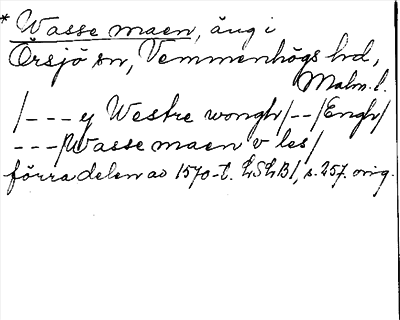 * Wasse maen, äng i
Örsjö sn, Vemmenhögs hd,
Malm. l.
/--- y Westre wongh/--/Engh/
---/Wasse maen v les/
förra delen av 1570-t. LSLB1, s. 257. orig.